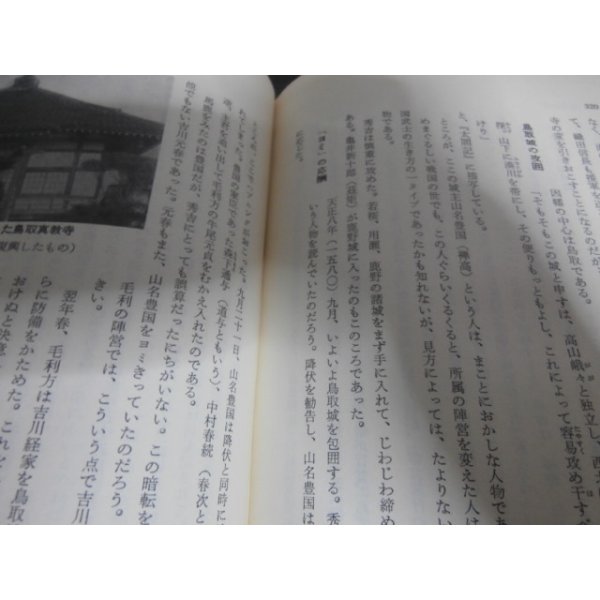 320
なく、織田信長も援軍を
寺の変を引きおこすことになるのだが、
因幡の中心は鳥取である。
鳥取城の攻囲
「そもそもこの城と申すは、高山峨々と独立し、西北
山下に湊川を帯し、その便りもっともよし、これによって容易攻め干すべ
けり」
と『太閤記』は描写している。
だが、ここの城主山名豊国(禅高)という人は、まことにおかしな人物であ
めまぐるしい戦国の世でも、この人ぐらいくるくると、所属の陣営を変えた人は
国武士の生き方の一タイプであったかも知れないが、見方によっては、たよりない
物である。
秀吉は慎重に攻めた。若桜、用瀬、鹿野の諸城をまず手に入れて、じわじわ締め
ある。亀井新十郎(茲矩)が鹿野城に入ったのもこのころであった。
天正八年(一五八〇)九月、いよいよ鳥取城を包囲する。秀
いう人物を読んでいたのだろう。降伏を勧告し、山名豊国は
に応じた。
九月二十一日、山名豊国は降伏と同時に
(道与ともいう)、中村春続(春次と
毛利方の牛尾元貞をむかえ入れたのである。
馬鹿をみたのは豊国だが、秀吉にとっても誤算だったにちがいない。この暗転を
他でもない吉川元春であった。元春もまた、山名豊国をヨミきっていたのだろう。
毛利の陣営では、こういう点で吉川
きい。
翌年春、毛利方は吉川経家を鳥取
らに防備をかためた。これ
おけぬと決意
た鳥取真教寺
復興したもの)